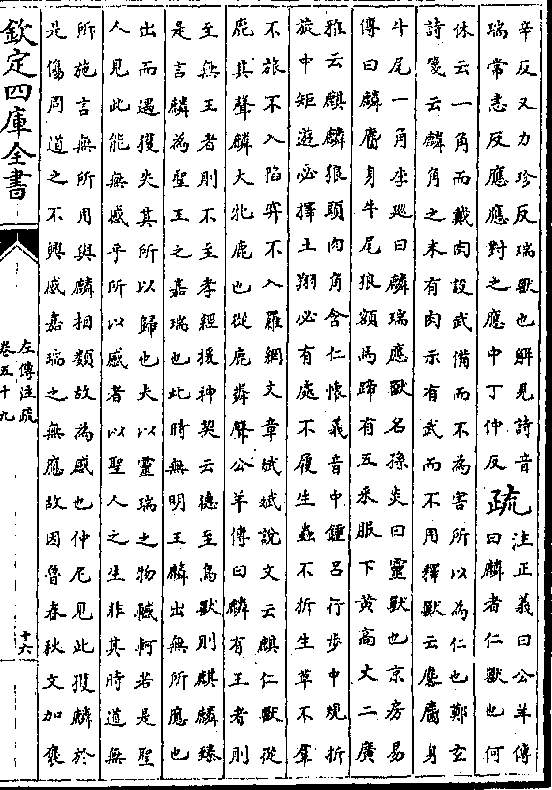 辛反又力珍反瑞獸也解見詩音
瑞常恚反應應對之應中丁仲反
疏
注正義曰公羊傳
曰麟者仁獸也何
休云一角而戴肉設武備而不為害所以為仁也鄭玄
詩箋云麟角之末有肉示有武而不用釋獸云麐麕身
牛尾一角李廵曰麟瑞應獸名孫炎曰靈獸也京房易
傳曰麟麕身牛尾狼額馬蹄有五采腹下黄高大二廣
雅云麒麟狼頭肉角含仁懷義音中鍾呂行步中規折
旋中矩遊必擇土翔必有處不履生蟲不折生草不羣
不旅不入陷穽不入羅網文章斌斌說文云麒仁獸從
鹿其聲麟大牝鹿也從鹿粦聲公羊傳曰麟有王者則
至無王者則不至孝經援神契云德至鳥獸則麒麟臻
是言麟為聖王之嘉瑞也此時無明王麟出無所應也
出而遇獲失其所以歸也夫以靈瑞之物轗軻若是聖
人見此能無感乎所以感者以聖人之生非其時道無
所施言無所用與麟相類故為感也仲尼見此獲麟於
是傷周道之不興感嘉瑞之無應故因魯春秋文加褒
欽定四庫全書
左傳注疏
卷五十九
十六